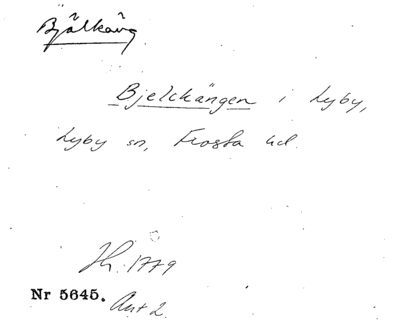 Bjälkäng
Bjelckängen i Lyby,
Lyby sn, Frosta hd.
1779
Nr 5645. Avt 2